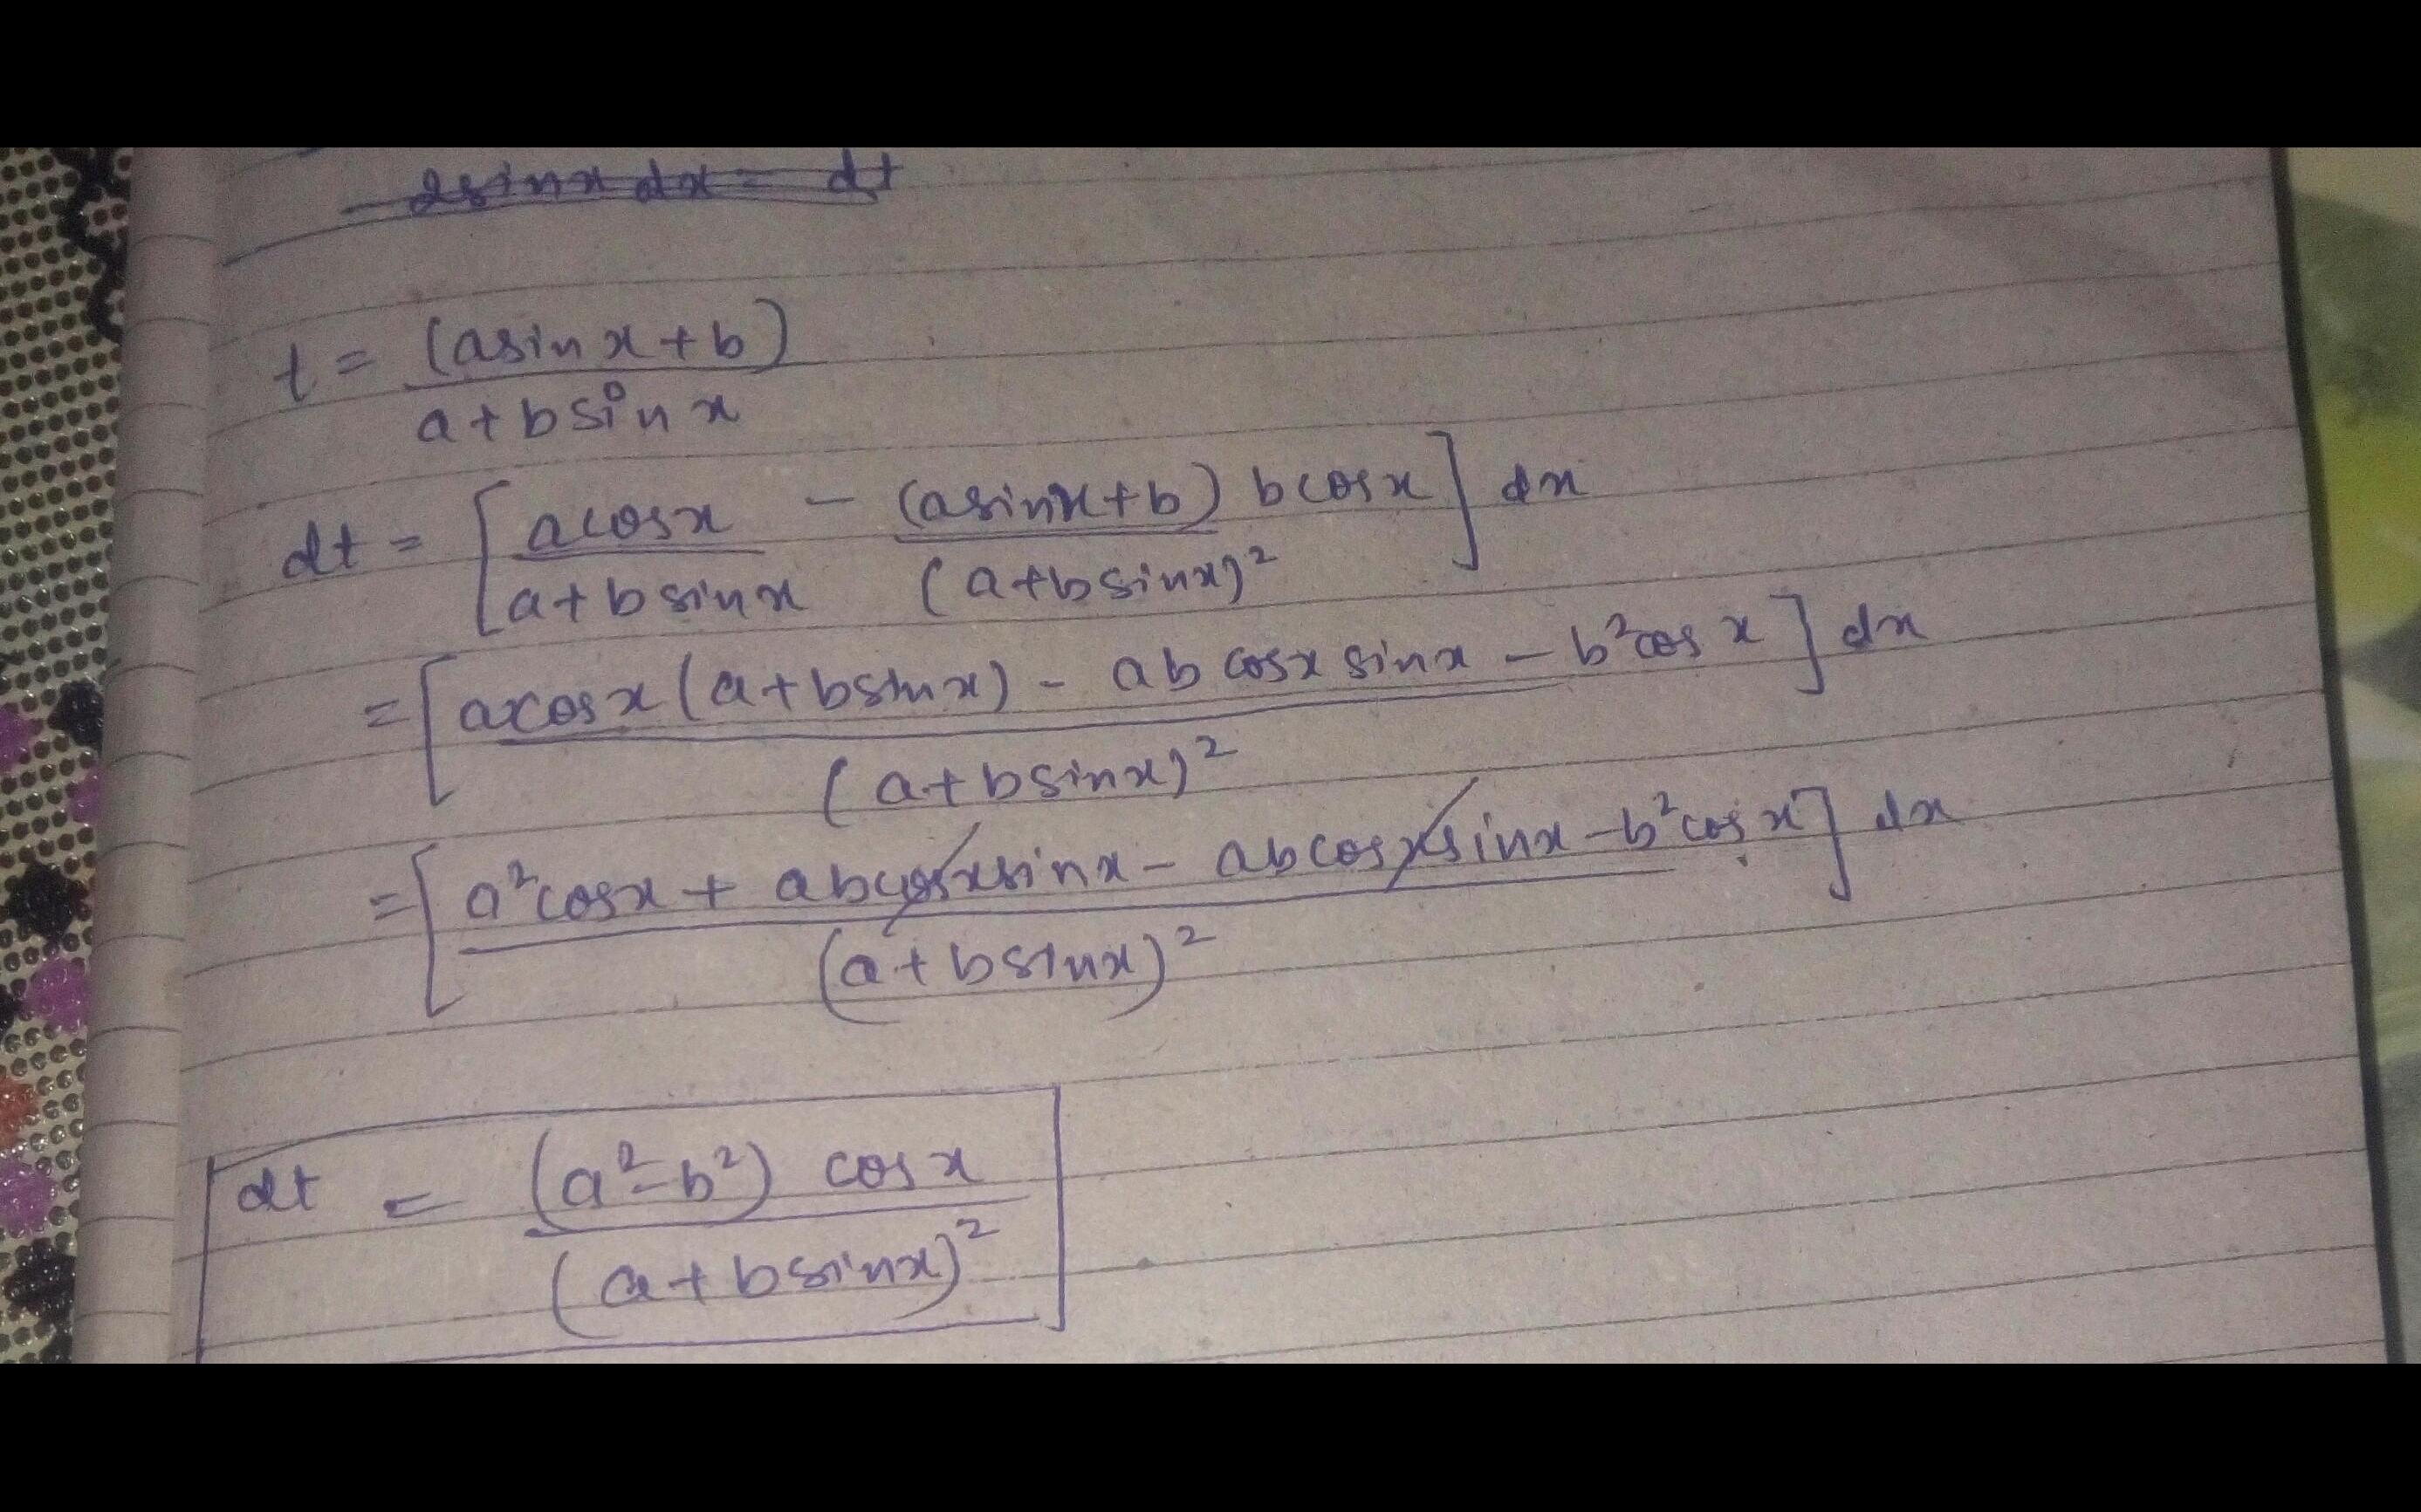 - 2sinx dx = dt
t = (asinx+b) / a+bsinx
dt = [ acosx / a+bsinx - (asinx+b) bcosx / (a+bsinx)² ] dx
= [ acosx(a+bsinx) - ab cosx sinx - b²cosx / (a+bsinx)² ] dx
= [ a²cosx + abcosxsinx - abcosxsinx - b²cosx / (a+bsinx)² ] dx
dt = (a²-b²) cosx / (a+bsinx)²